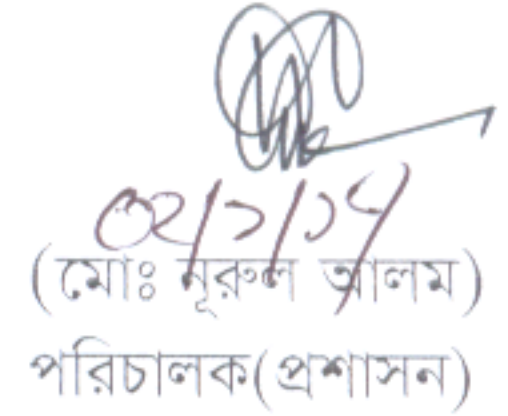 ০২/১/১৭
(মোঃ নূরুল আলম)
পরিচালক(প্রশাসন)